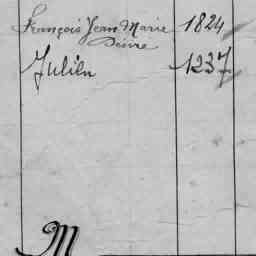 François Jean Marie 1824
Désiré
Julien 1237
M